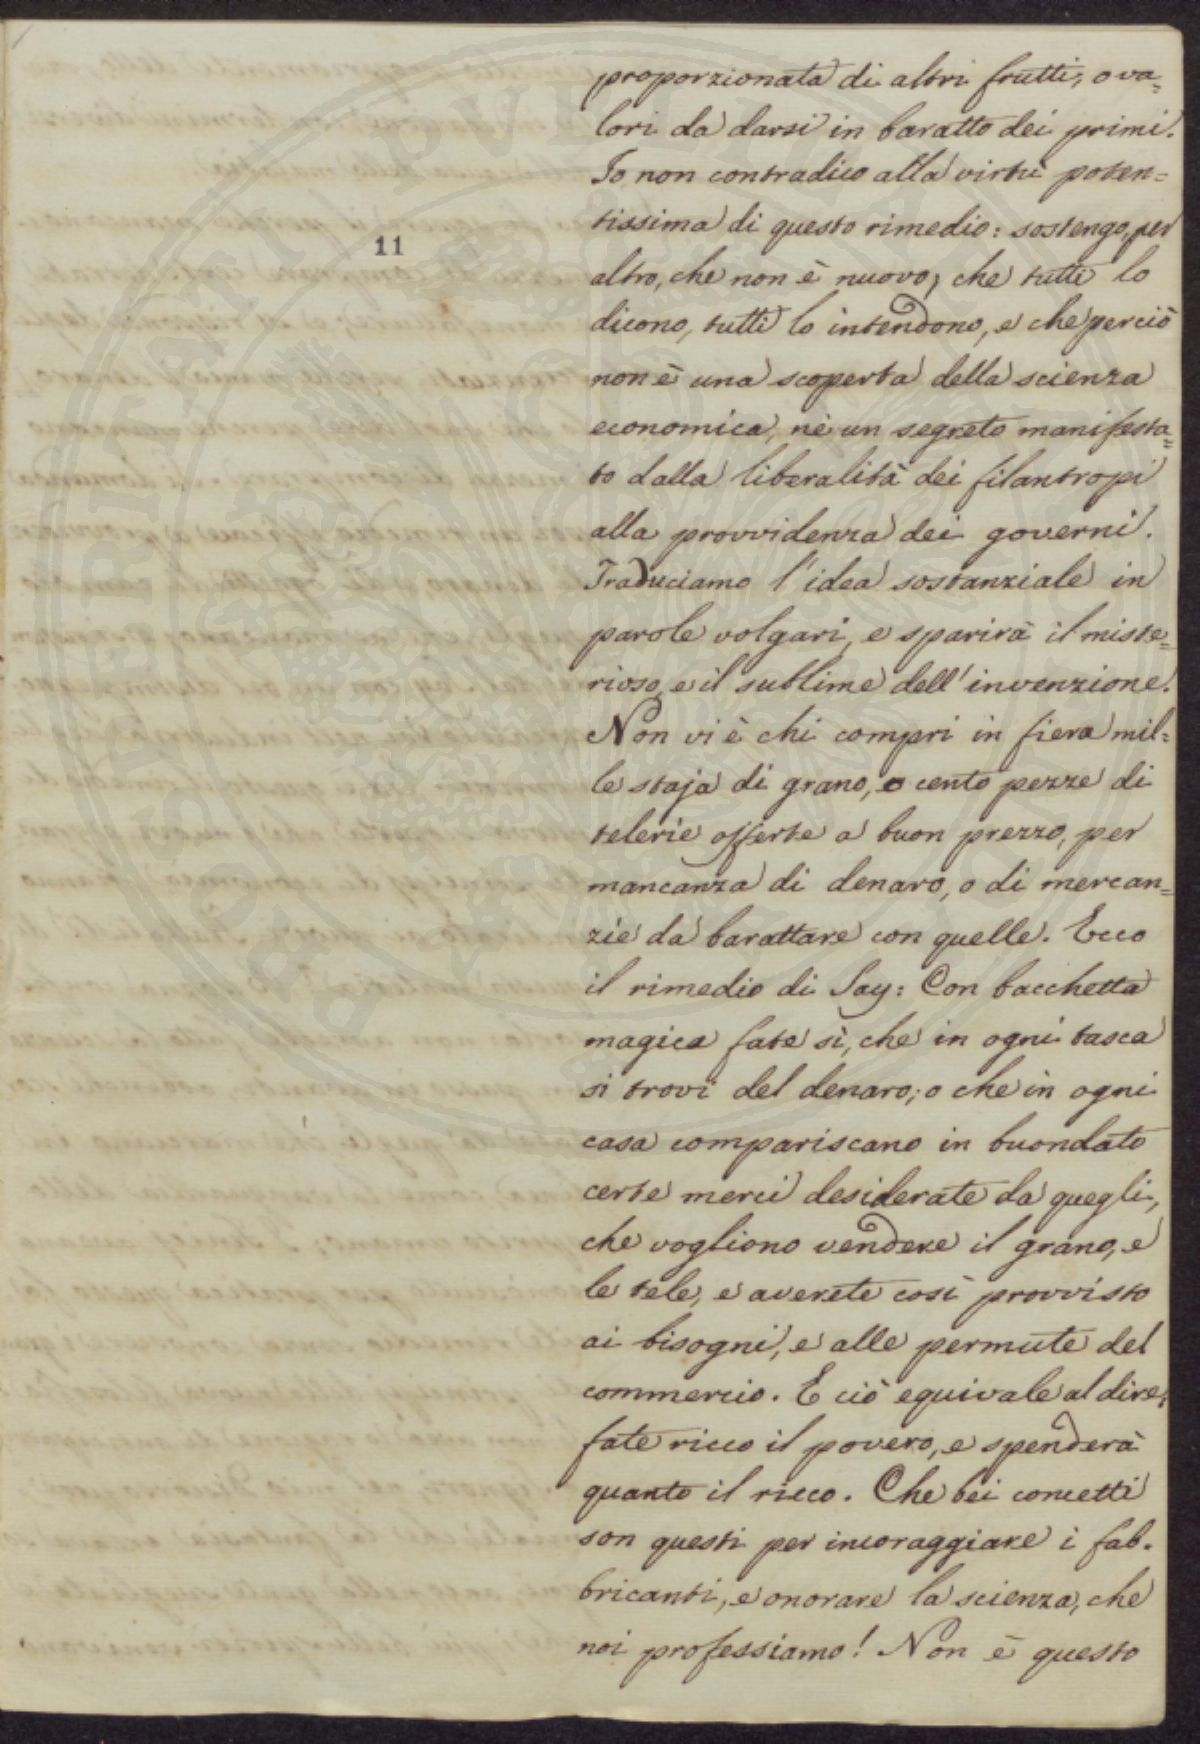 11
proporzionata di altri frutti, o va=
lori da darsi in baratto dei primi.
Io non contradico alla virtù poten=
tissima di questo rimedio: sostengo, per
altro, che non è nuovo, che tutti lo
dicono, tutti lo intendono, e che perciò
non è una scoperta della scienza
economica, nè un segreto manifesta=
to dalla liberalità dei filantropi
alla provvidenza dei governi.
Traduciamo l'idea sostanziale in
parole volgari, e sparirà il miste=
rioso, e il sublime dell'invenzione.
Non vi è chi compri in fiera mil=
le staja di grano, o cento pezze di
telerie offerte a buon prezzo, per
mancanza di denaro, o di mercan=
zie da barattare con quelle. Ecco
il rimedio di Say: Con bacchetta
magica fate sì, che in ogni tasca
si trovi del denaro; o che in ogni
casa compariscano in buondato
certe merci desiderate da quegli,
che vogliono vendere il grano, e
le tele, e averete così provvisto
ai bisogni, e alle permute del
commercio. E ciò equivale al dire,
fate ricco il povero, e spenderà
quanto il ricco. Che bei concetti
son questi per incoraggiare i fab-
bricanti, e onorare la scienza, che
noi professiamo! Non è questo